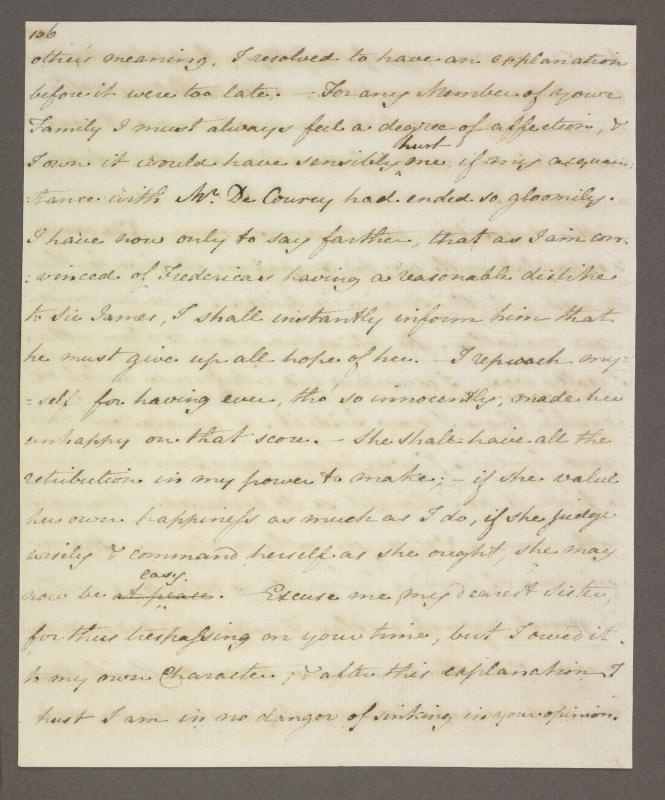 106
other's meaning. I resolved to have an explanation
before it were too late. – For any Member of your
Family I must always feel a degree of affection, &
hurt
I own it would have sensibly me, if my acquain:
:tance with Mr. De Courcy had ended so gloomily.
I have now only to say farther, that as I am con:
:vinced of Frederica's having a reasonable dislike
to Sir James, I shall instantly inform him that
he must give up all hope of her. – I reproach my=
=self for having ever, tho' so innocently, made her
unhappy on that score. – She shall have all the
retribution in my power to make; – if she value
her own happiness as much as I do, if she judge
wisely & command herself as she ought, she may
easy.
now be at peace. – Excuse me, my dearest Sister,
for thus trespassing on your time, but I owed it
to my own Character; & after this explanation I
trust I am in no danger of sinking in your opinion.